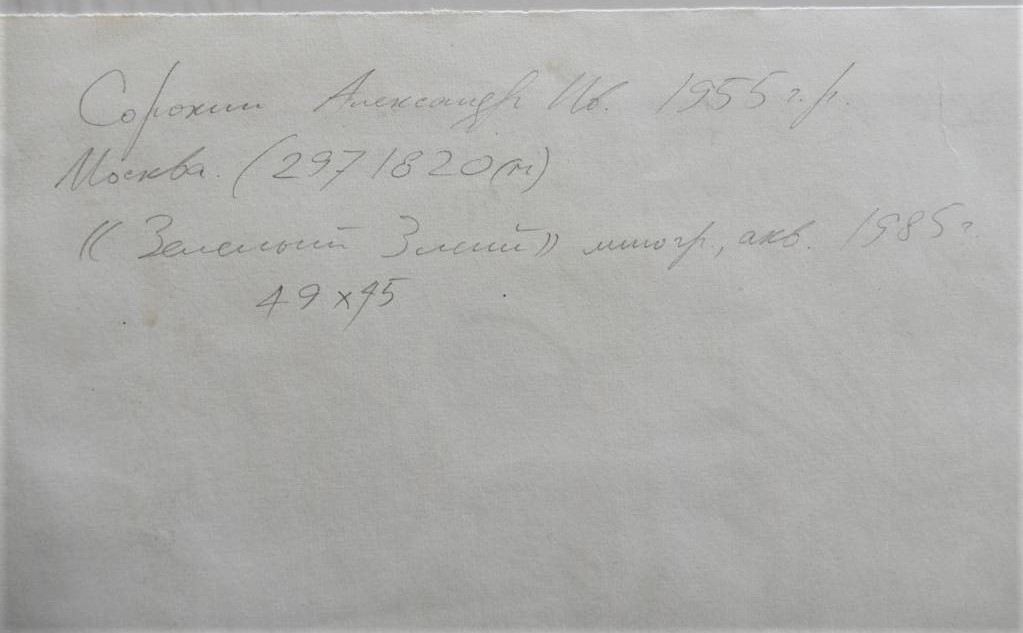 Сорокин Александр Ив. 1955 г.р.
Москва. (297 18 20(м)
«Зеленый Змей» , акв. 1985 г.
49 х 45